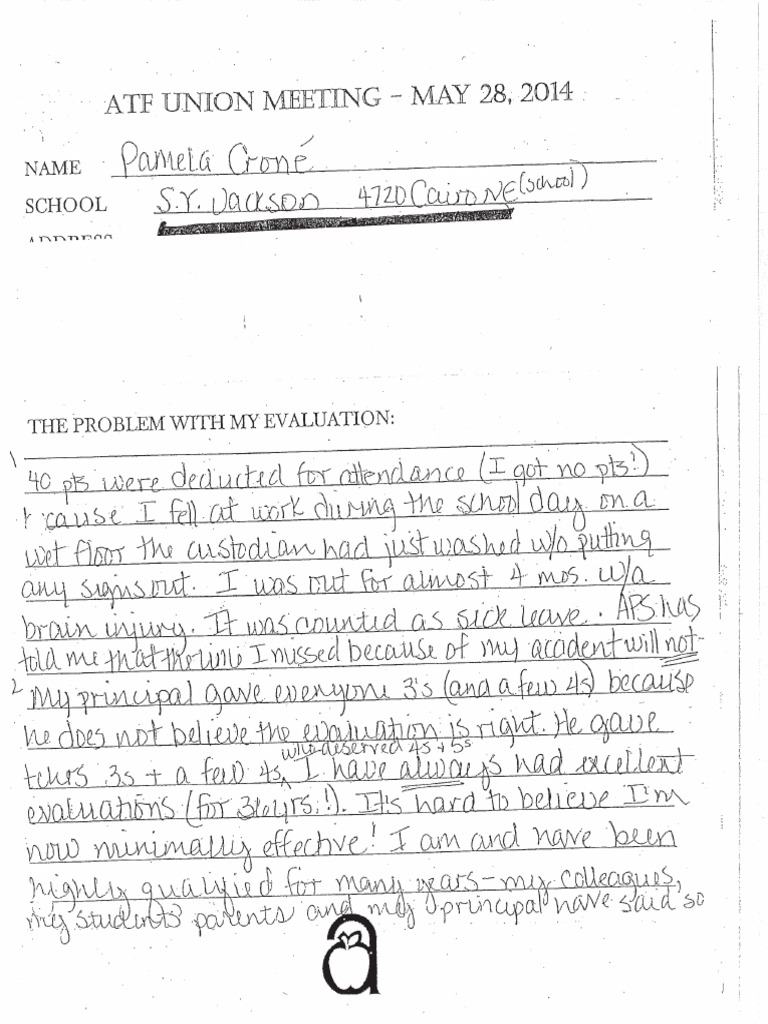 ATF UNION MEETING – MAY 28, 2014
NAME Pamela Croné
SCHOOL S.Y. Jackson 4720 Cairo NE (school)
ADDRESS
THE PROBLEM WITH MY EVALUATION:
1 40 pts were deducted for attendance (I got no pts!)
'cause I fell at work during the school day on a
wet floor the custodian had just washed w/o putting
any signs out. I was out for almost 4 mos. w/a
brain injury. It was counted as sick leave. APS has
told me that the time I missed because of my acadent will not
2 My principal gave everyone 3's (and a few 4s) because
he does not believe the evaluation is right. He gave
who deserved 4s + 5s
tchrs 3s + a few 4s, I have always had excellent
evaluations (for 36 yrs.!). It's hard to believe I'm
now minimally effective! I am and have been
highly qualified for many years – my colleagues,
my students' parents and my principal have said so
a